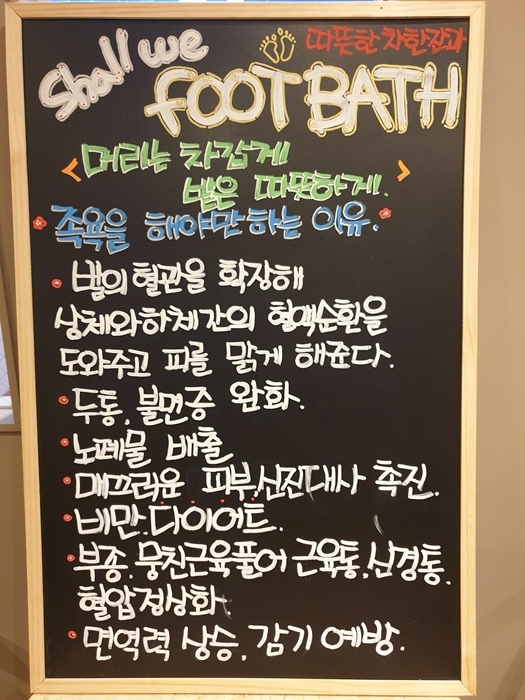 따뜻한 차한잔과
Shall we
FOOT BATH
<머리는 차갑게
발은 따뜻하게.>
족욕을 해야만 하는 이유.
발의 혈관을 확장해
상체와하체간의 혈액순환을
도와주고 피를 맑게 해준다.
두통, 불면증 완화.
노폐물 배출
매끄러운 피부,신진대사 촉진.
비만.다이어트.
부종.뭉친근육풀어 근육통,신경통,
혈압정상화
면역력 상승, 감기 예방.